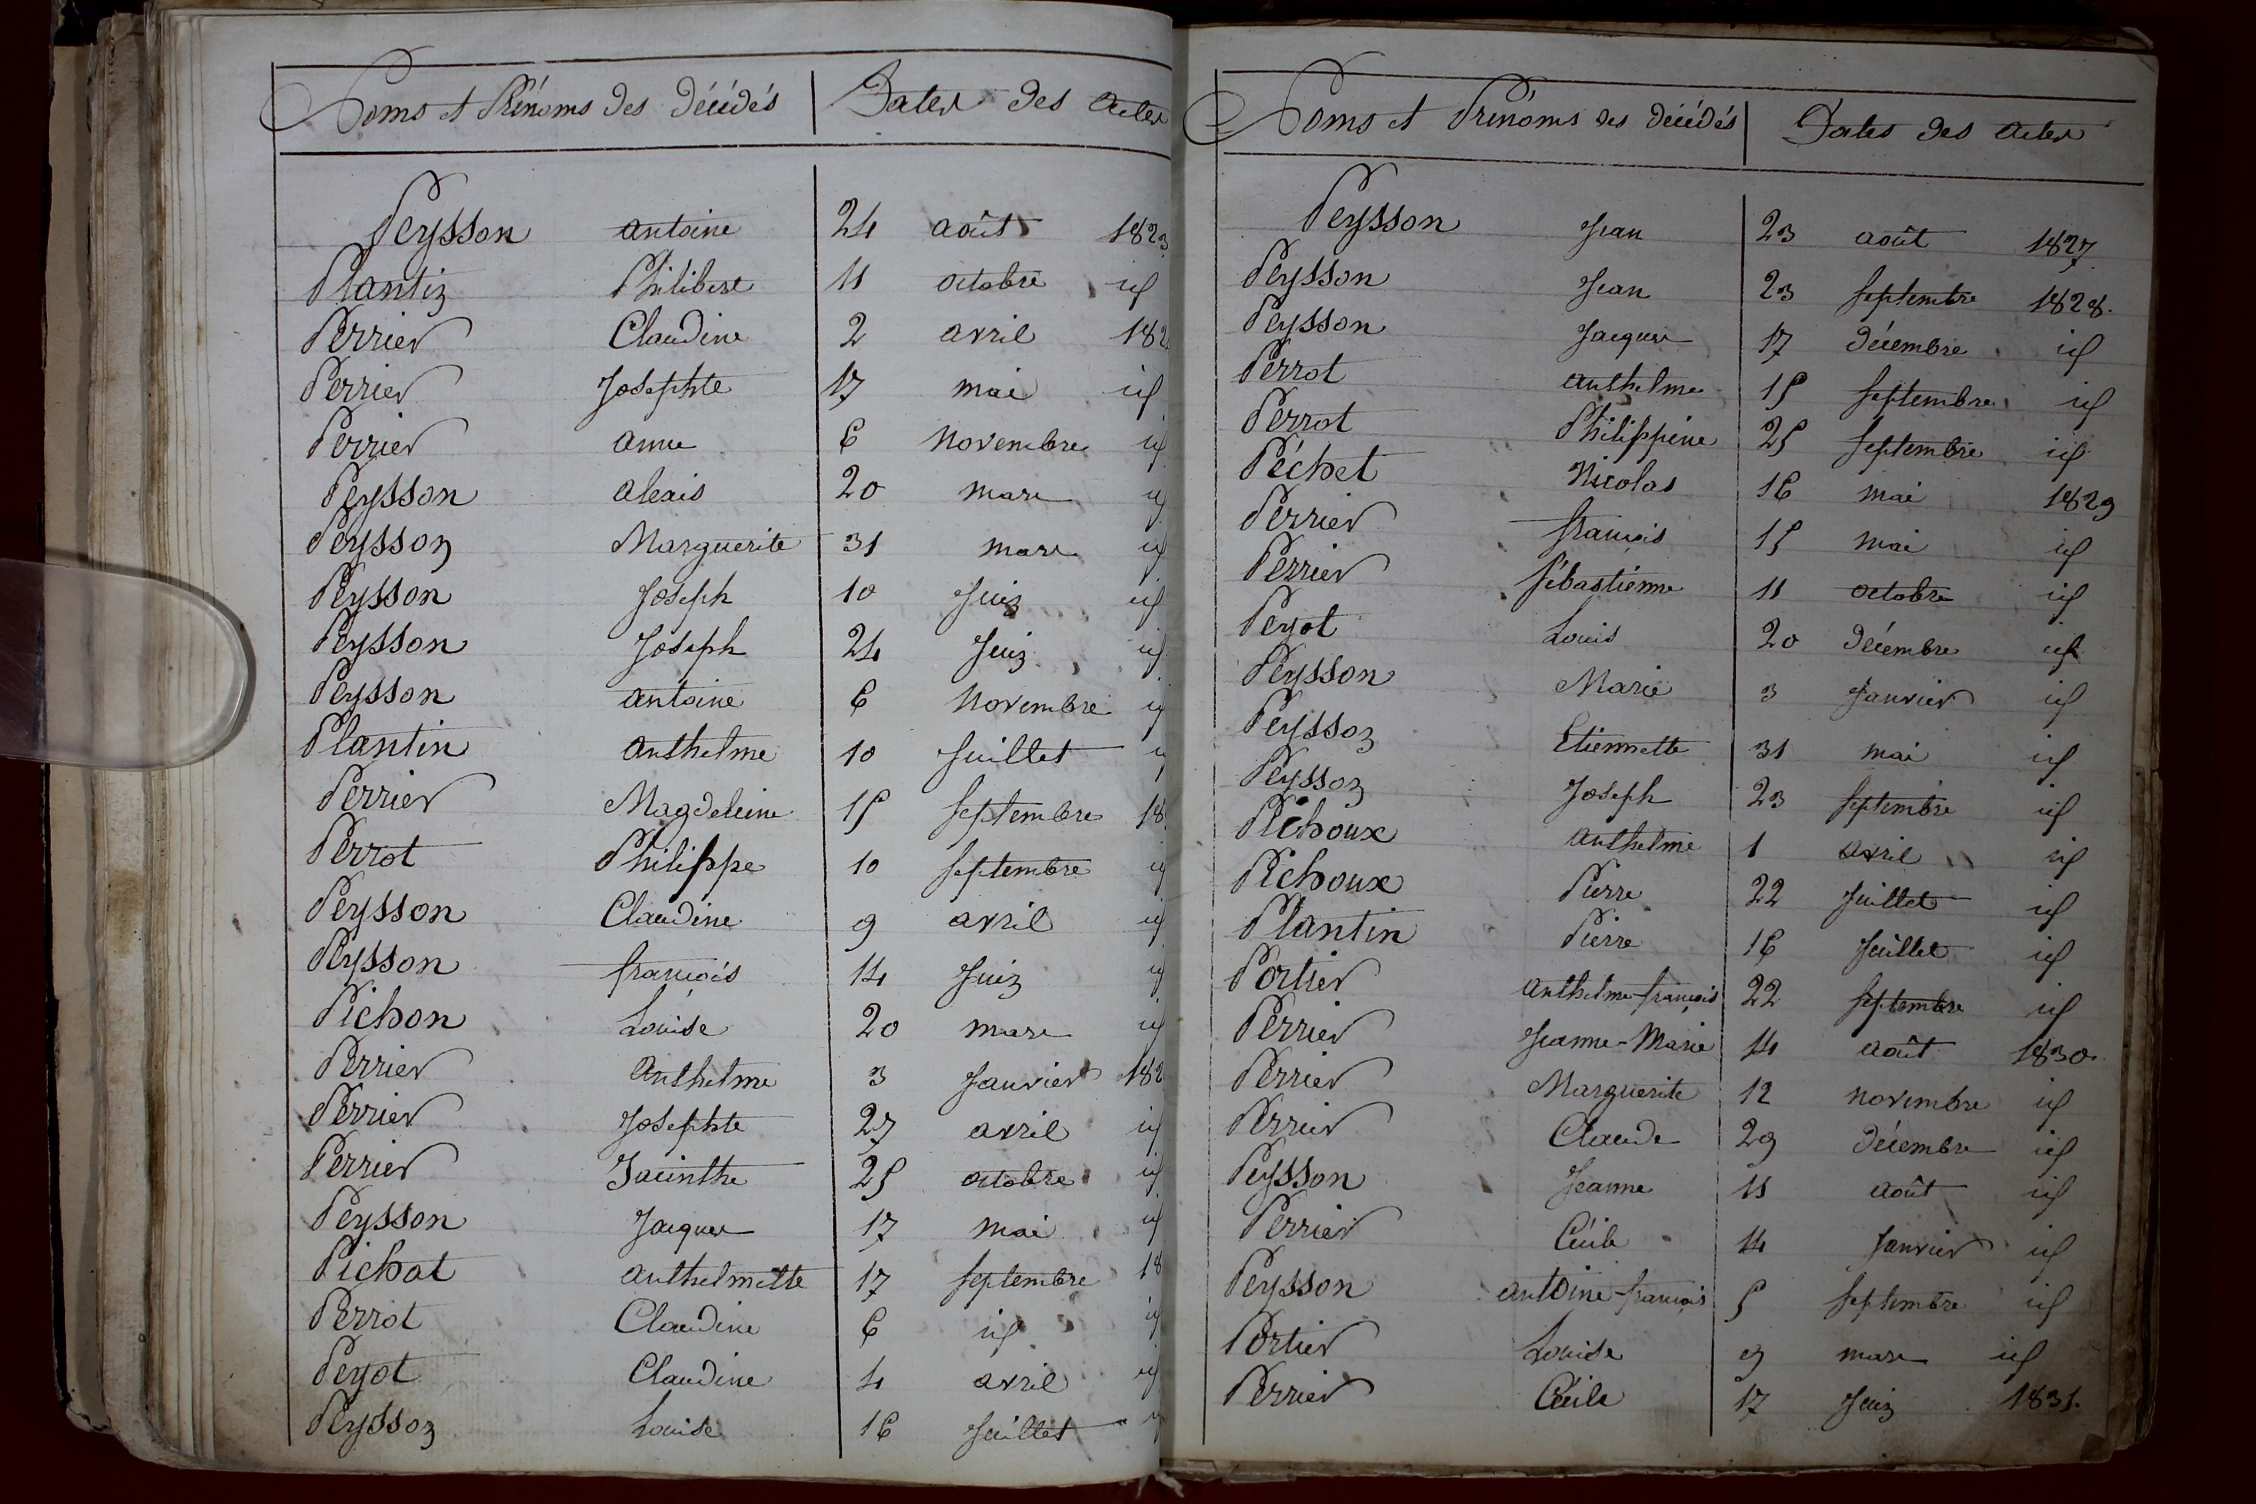 Noms et Prénoms des décédés Dates des actes
Peysson antoine 24 août 1823
Plantin Philibert 11 octobre id
Perrier Claudine 2 avril 182
Perrier Josephte 17 mai id
Perrier anne 6 novembre id
Peysson alexis 20 mars id
Peysson Marguerite 31 mars id
Peysson Joseph 10 Juin id
Peysson Joseph 24 Juin id
Peysson antoine 6 novembre id
Plantin anthelme 10 Juillet id
Perrier Magdeleine 15 septembre 18
Perrot Philippe 10 septembre id
Peysson Claudine 9 avril id
Peysson françois 14 Juin id
Pichon Louise 20 mars id
Perrier anthelme 3 Janvier 182
Perrier Josephte 27 avril id
Perrier Jacinthe 25 octobre id
Peysson Jacques 17 mai id
Pichat anthelmette 17 septembre 18
Perrot Claudine 6 id id
Peyot Claudine 4 avril id
Peysson Louise 16 Juillet id
Noms et Prénoms des décédés Dates des actes
Peysson Jean 23 août 1827
Peysson Jean 23 septembre 1828.
Peysson Jacques 17 décembre id
Perrot anthelme 15 septembre id
Perrot Philippine 25 septembre id
Péchet Nicolas 16 mai 1829
Perrier françois 15 mai id
Perrier sébastienne 11 octobre id
Peyot Louis 20 décembre id
Peysson Marie 3 Janvier id
Peysson Etiennette 31 mai id
Peysson Joseph 23 septembre id
Pichoux anthelme 1 avril id
Pichoux Pierre 22 Juillet id
Plantin Pierre 16 Juillet id
Portier anthelme-françois 22 septembre id
Perrier Jeanne-Marie 14 août 1830.
Perrier Marguerite 12 novembre id
Perrier Claude 29 décembre id
Peysson Jeanne 11 août id
Perrier Cécile 14 Janvier id
Peysson antoine-françois 5 septembre id
Portier Louise 9 mars id
Perrier Cécile 17 Juin 1831.